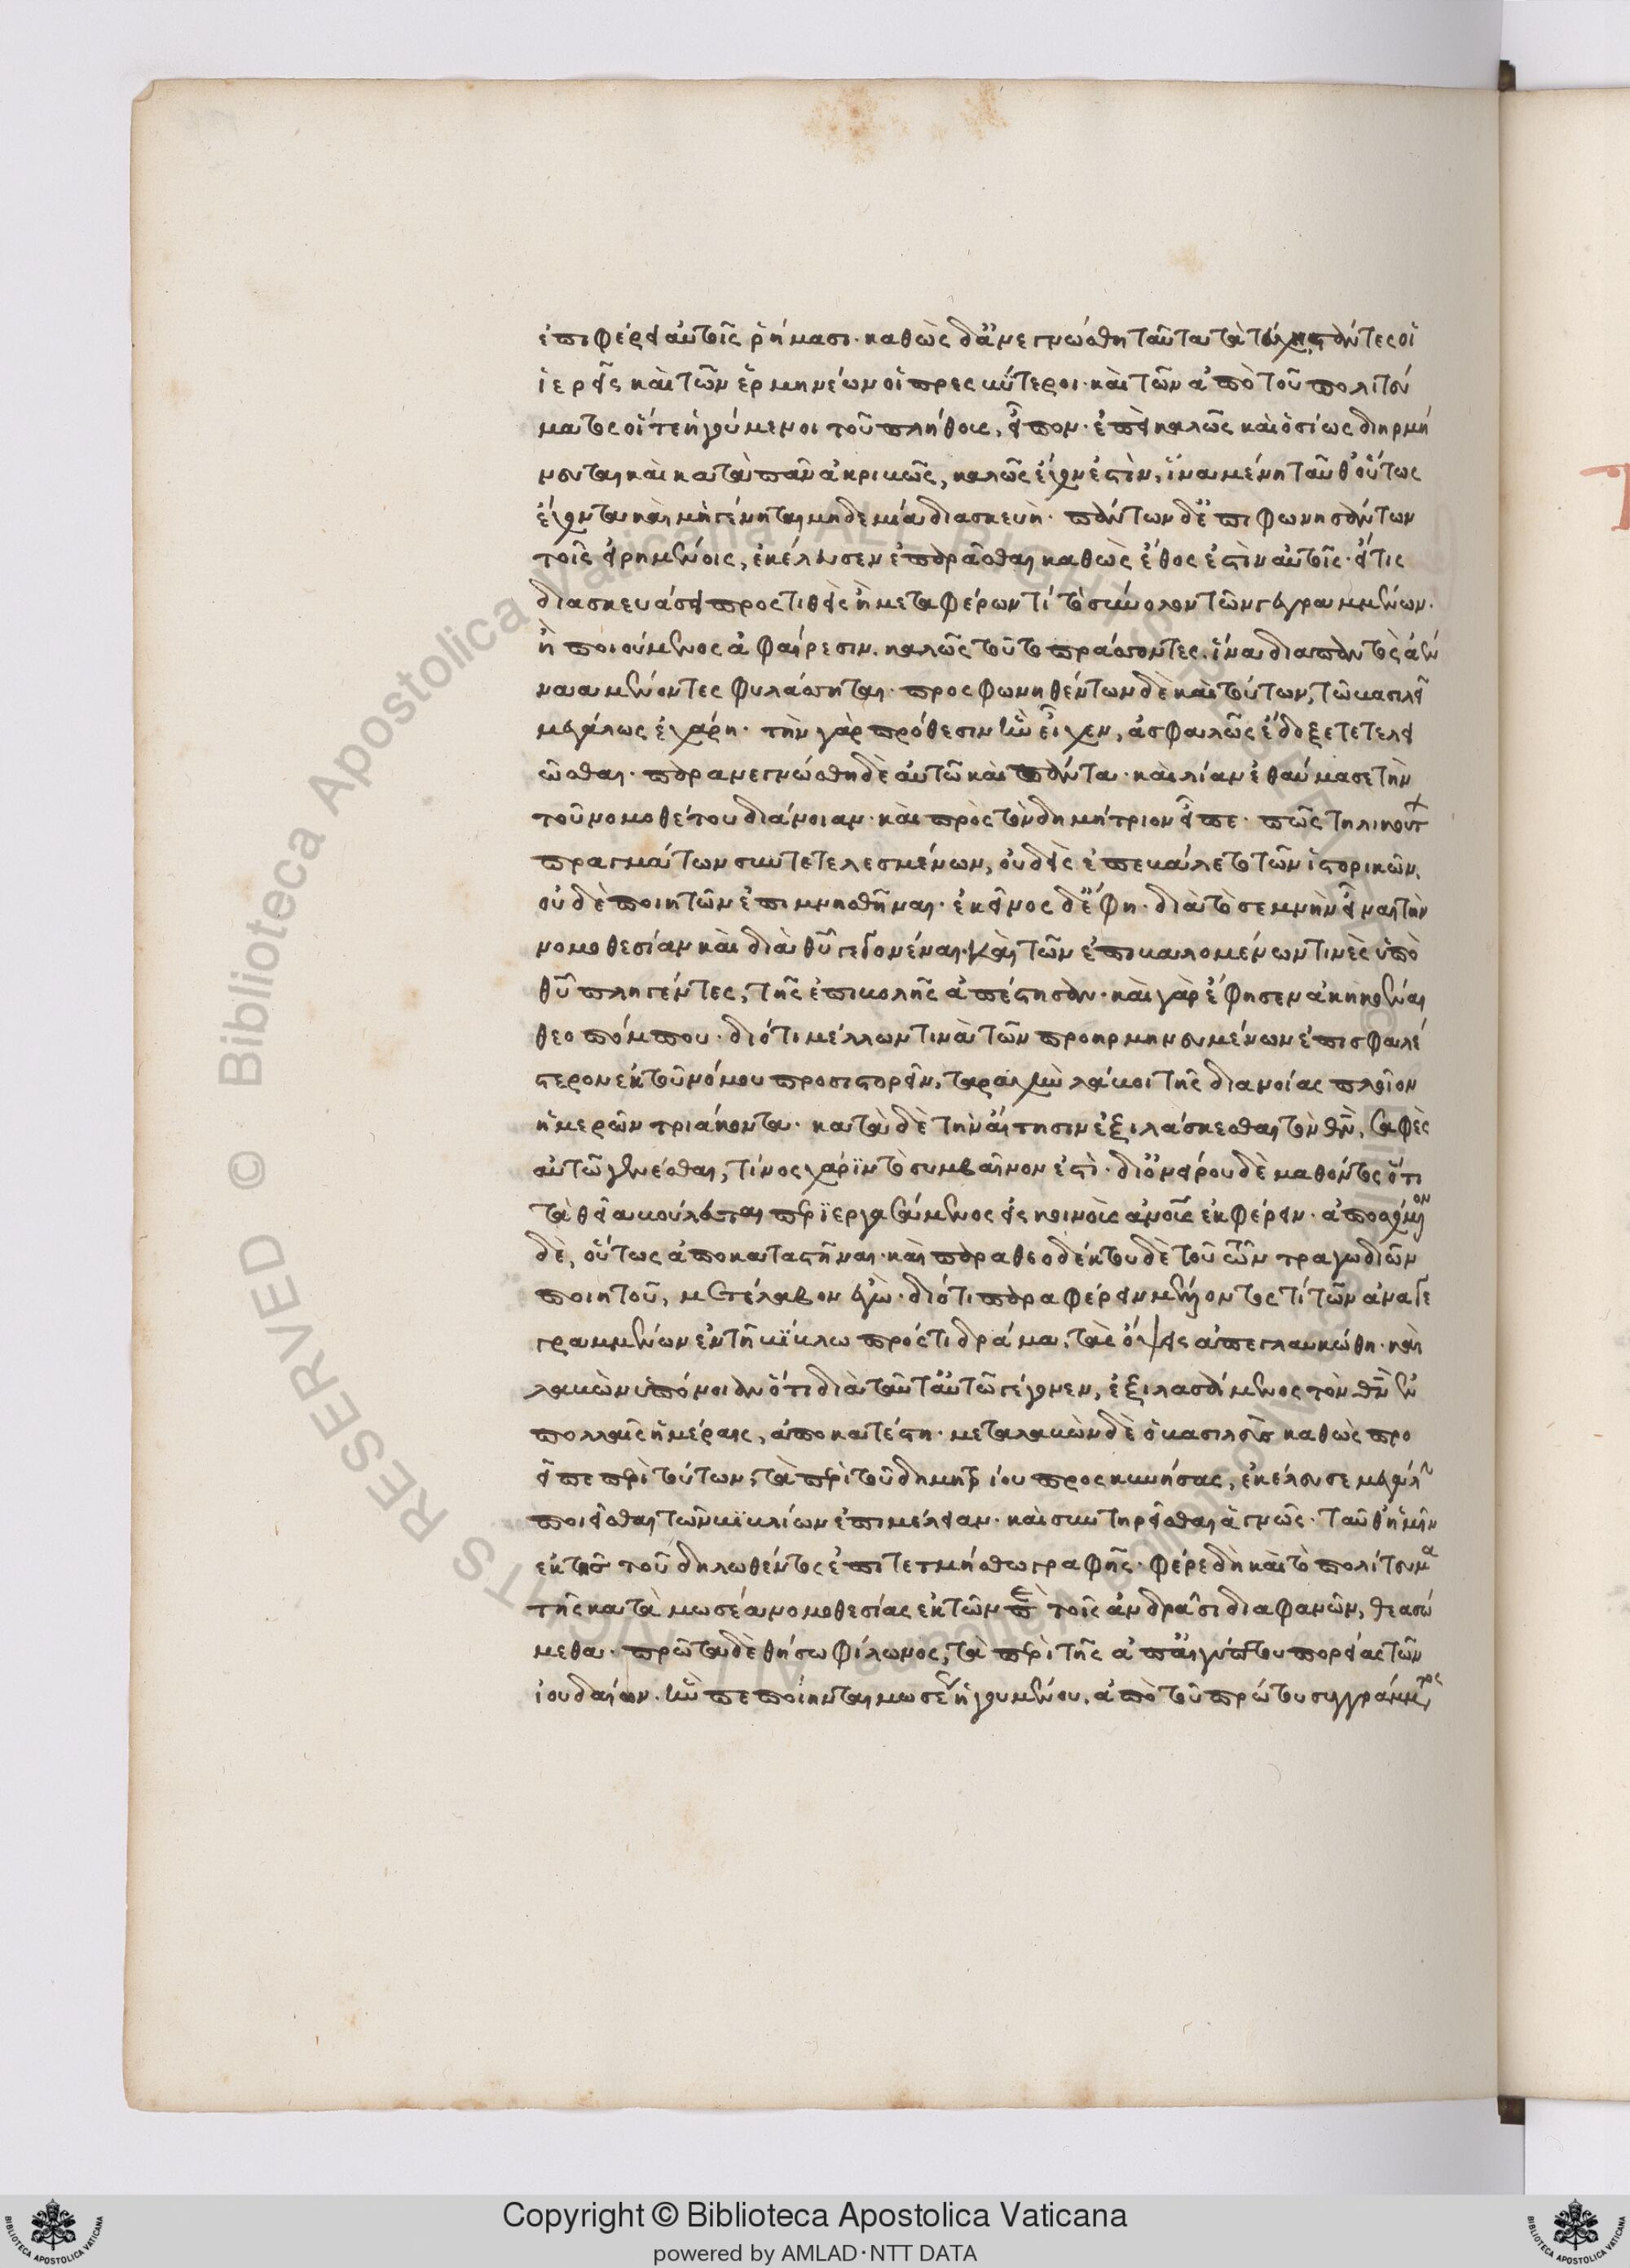 ἐπιφέρει αὐτοῖς ῥήμασι· καθὼς δἀνεγνώσθη ταῦτα τὰ τεύχη στάντες οἱ
ἱερεῖς καὶ τῶν ἑρμηνέων οἱ πρεσβύτεροι· καὶ τῶν ἀπὸ τοῦ πολιτεύ
ματος οἵ τε ἡγούμενοι τοῦ πλήθους, εἶπον· ἐπεὶ καλῶς καὶ ὁσίως διηρμή
νευται καὶ κατὰ πᾶν ἀκριβῶς, καλῶς ἔχον ἐστὶν, ἵνα μένῃ ταῦθ οὕτως
ἔχοντα καὶ μὴ γένηται μηδεμία διασκευή· πάντων δἐπιφωνησάντων
τοῖς εἰρημένοις, ἐκέλευσεν ἐπαρᾶσθαι καθὼς ἔθος ἐστὶν αὐτοῖς· εἴτις
διασκευάσει προστιθεὶς ἢ μεταφέρων τί τὸ σύνολον τῶν γεγραμμένων.
ἢ ποιούμενος ἀφαίρεσιν. καλῶς τοῦτο πράσσοντες. ἵνα διαπαντὸς ἀέν
ναα μένοντες φυλάσσηται· προσφωνηθέντων δὲ καὶ τούτων, τῷ βασιλεῖ
μεγάλως ἐχάρη· τὴν γὰρ πρόθεσιν ἣν εἶχεν, ἀσφαλῶς ἔδοξε τετελει
ῶσθαι· παρανεγνώσθη δὲ αὐτῷ καὶ πάντα· καὶ λίαν ἐθαύμασε τὴν
τοῦ νομοθέτου διάνοιαν· καὶ πρὸς τὸν δημήτριον εἶπε· πῶς τηλικούτ
πραγμάτων συντετελεσμένων, οὐδεὶς ἐπεβάλετο τῶν ἱστορικῶν.
οὐδὲ ποιητῶν ἐπιμνησθῆναι· ἐκεῖνος δἔφη· διὰ τὸ σεμνὴν εἶναι τὴν
νομοθεσίαν καὶ διὰ θυ γεγονέναι· καὶ τῶν ἐπιβαλομένων τινὲς ὑπὸ
θυ πληγέντες, τῆς ἐπιβολῆς ἀπέστησαν· καὶ γὰρ ἔφησεν ἀκηκοέναι
θεοπόμπου· διότι μέλλων τινὰ τῶν προηρμηνευμένων ἐπισφαλέ
στερον ἐκ τοῦ νόμου προσιστορεῖν, ταραχὴν λάβοι τῆς διανοίας πλεῖον
ἡμερῶν τριάκοντα· κατὰ δὲ τὴν αἴτησιν ἐξιλάσκεσθαι τὸν θν, σαφὲς
αὐτῷ γενέσθαι, τίνος χάριν τὸ συμβαῖνον ἐστί· διὀνείρου δὲ μαθόντος ὅτι
τὰ θεῖα βούλεται περιεργασάμενος εἰς κοινοὺς ἀνους ἐκφέρειν· ἀποσχόμενον
δὲ, οὕτως ἀποκαταστῆναι· καὶ παρα θεοδέκτου δὲ τοῦ τῶν τραγωδιῶν
ποιητοῦ, μετέλαβον ἐγώ· διότι παραφέρειν μέλλοντος τί τῶν ἀναγε
γραμμένων ἐν τῇ βίβλω πρός τι δρᾶμα, τὰς ὄψεις ἀπεγλαυκώθη· καὶ
λαβὼν ὑπόνοιαν ὅτι διὰ ταῦτ αὐτῷ γέγονεν, ἐξιλασάμενος τὸν θν ἐν
πολλαῖς ἡμέραις, ἀποκατέστη· μεταλαβὼν δὲ ὁ βασιλεὺς καθὼς προ
εἶπε περὶ τούτων, τὰ περὶ τοῦ δημητρίου προσκυνήσας, ἐκέλευσε μεγάλην
ποιεῖσθαι τῶν βιβλίων ἐπιμέλειαν· καὶ συντηρεῖσθαι ἁγνῶς· ταῦθ ἡμῖν
ἐκ τῆς τοῦ δηλωθέντος ἐπιτετμήσθω γραφῆς· φέρε δὴ καὶ τὸ πολίτευμα
τῆς κατὰ μωσέα νομοθεσίας ἐκ τῶν π τοῖς ἀνδράσι διαφανῶν, θεασώ
μεθα· πρῶτα δὲ θήσω φίλωνος, τὰ περὶ τῆς ἀπαἰγύπτου πορείας τῶν
ἰουδαίων. ἣν πεποίηνται μωσέως ἡγουμένου. ἀπὸ τοῦ πρώτου συγγράμματος